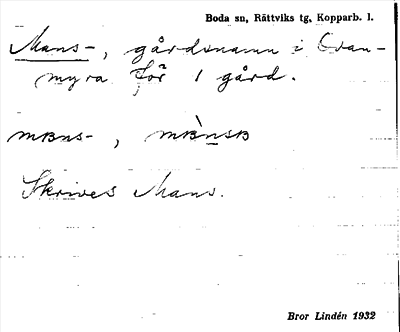 Boda sn, Rättviks tg, Kopparb. l.
Mans-, gårdsnamn i Gran-
myra för 1 gård.
mɐns-, mɐ̀nsɐ
Skrives Mans.
Bror Lindén 1932